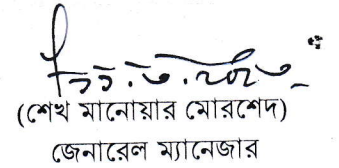 (শেখ মানোয়ার মোরশেদ)
জেনারেল ম্যানেজার